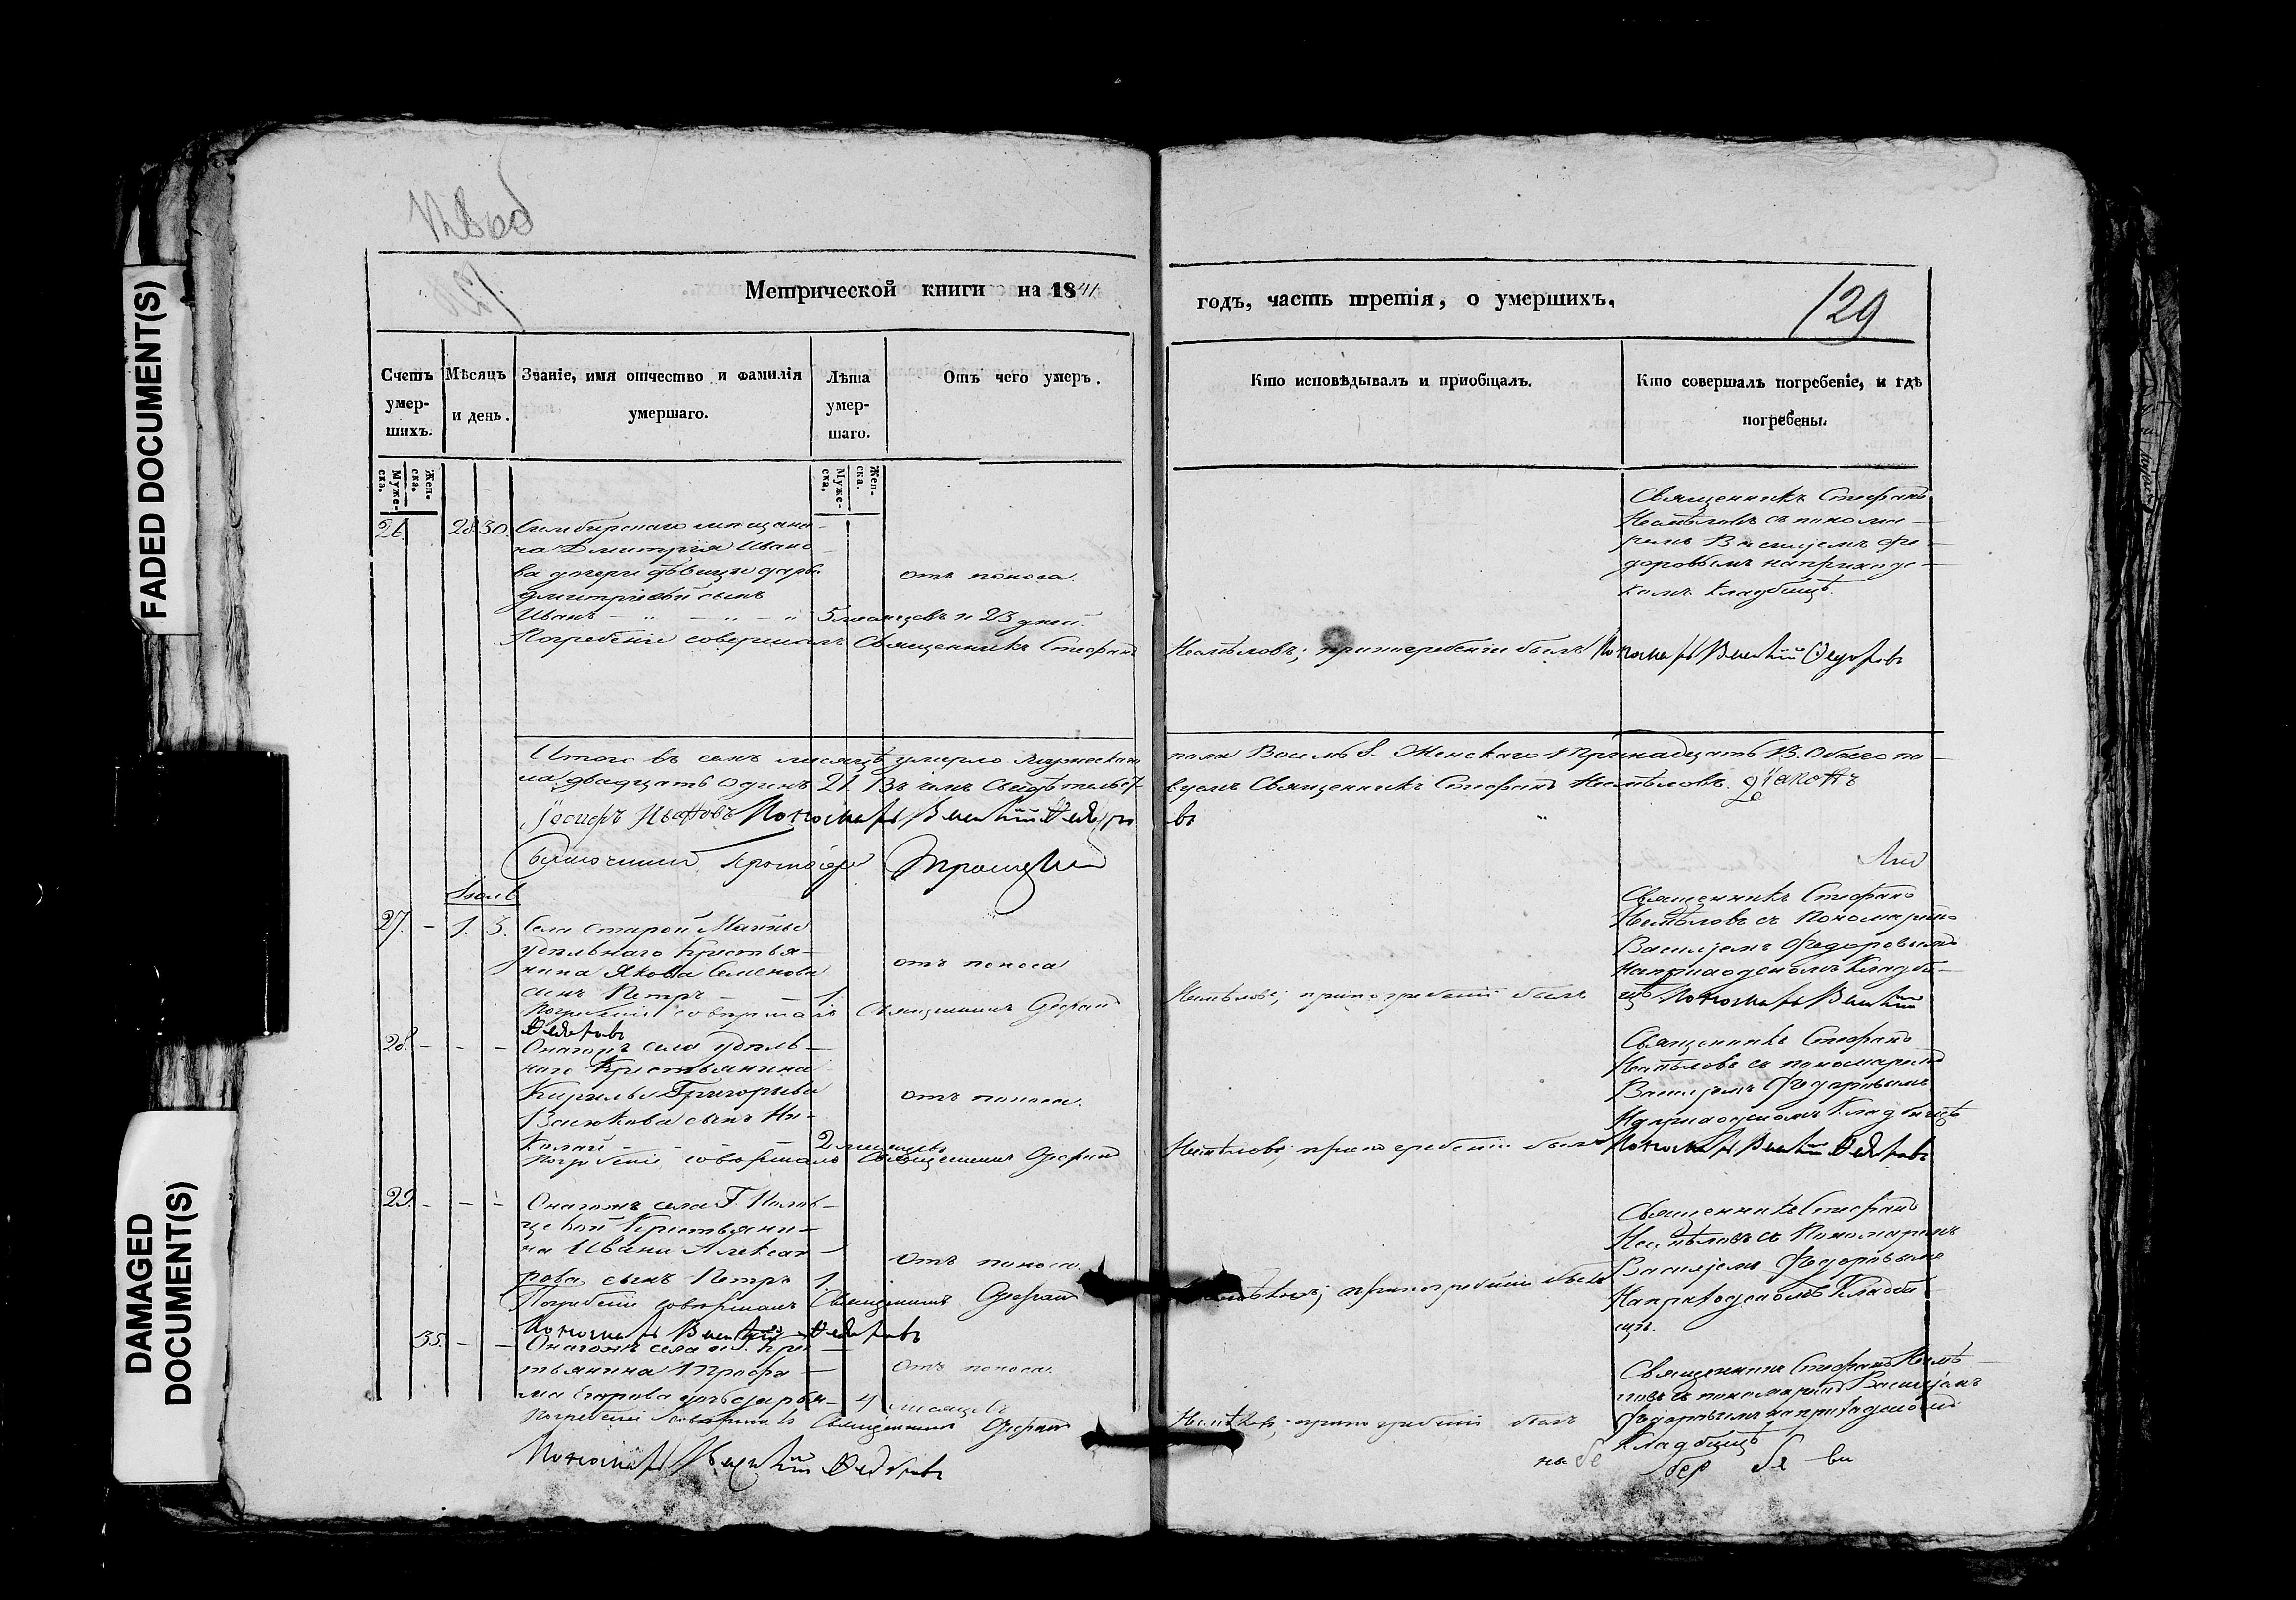 FADED DOCUMENT(S)
DAMAGED
DOCUMENT(S)
Метрической книги на 1841
годъ, часть третія, о умершихъ.
129
Счетъ умер-шихъ.
Муже-ска.
Жен-ска.
Мѣсяцъ и день.
Званіе, имя отчество и фамилія умершаго.
Лѣта умер-шаго.
Муже-ска.
Жен-ска.
Отъ чего умеръ.
Кто исповѣдывалъ и пріобщалъ.
Кто совершалъ погребеніе, и гдѣ погребены.
26. 28. 30. Симбирскаго мещани-
на Дмитрія Ивано
ва дочери дѣвицы Дарьи
Дмитріевой сынъ
Иванъ 5 месяцевъ и 23 дней.
отъ поноса.
Священникъ Стефанъ
съ понома-
ремъ Васильемъ Фе-
доровымъ на приходс-
комъ кладбищѣ.
Погребеніе совершалъ Священникъ Стефанъ
при погребеніи былъ Пономарь Василій Федоровъ
Итого въ семъ месяцѣ умерло мужескаго
пола Восемь 8. Женскаго тринадцать 13. Обоего по-
ла двадцать одинъ 21. Въ чемъ свидѣтельст-
вуемъ Священникъ Стефанъ Діаконъ
Іосифъ Ивановъ Пономарь Василій Федоро
въ
Благочинный
Іюль
27. - 1. 3. Села Старой Майны
удѣльнаго крестья-
нина Якова Семенова
сынъ Петръ - - 1.
отъ поноса
Священникъ Стефанъ
съ Пономаремъ
Васильемъ Федоровымъ
на приходскомъ кладби-
щѣ
Погребеніе совершалъ Священникъ Стефанъ
при погребеніи былъ Пономарь Василій
Федоровъ
28. - - - Онагожъ села удѣль-
наго крестьянина
Кирилы Григорьева
Васюкова сынъ Ни-
колай - - 2 месяцевъ
отъ поноса.
Священникъ Стефанъ
съ пономаремъ
Васильемъ Федоровымъ
на приходскомъ кладбищѣ
Погребеніе совершалъ Священникъ Стефанъ
при погребеніи былъ Пономарь Василій Федоровъ
29. - - - Онагожъ села Г.
крестьяни-
на Ивана Алексан
рова сынъ Петръ 1.
отъ поноса.
Священникъ Стефанъ
съ Пономаремъ
Васильемъ Федоровымъ
на приходскомъ кладби-
щѣ.
Погребеніе совершалъ Священникъ Стефанъ
при погребеніи былъ
Пономарь Василій Федоровъ
35. - - Онагожъ села
тьянина Трофи-
ма Егорова дочь Дарья - 4 месяцевъ
отъ поноса.
Священникъ Стефанъ
съ пономаремъ Васильемъ
Федоровымъ на приходскомъ
кладбищѣ
Погребеніе совершалъ Священникъ Стефанъ
при погребеніи былъ
Пономарь Василій Федоровъ